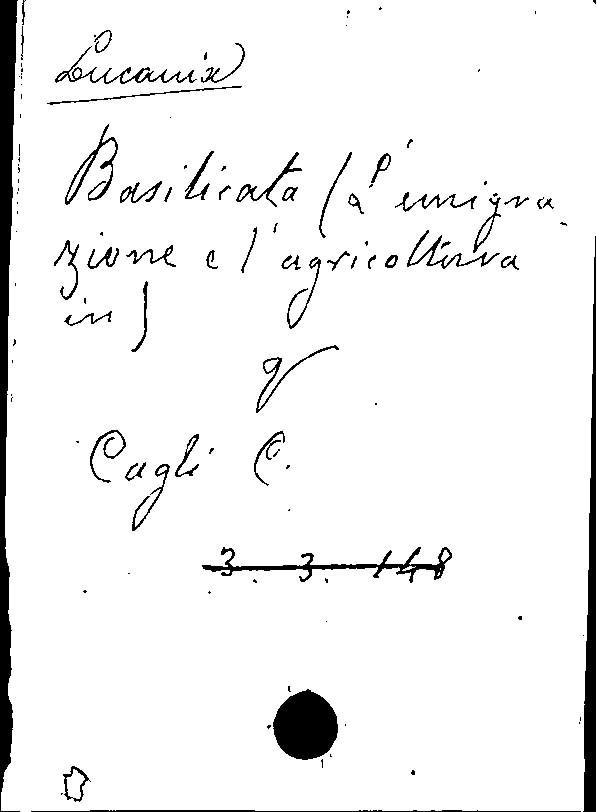 Lucania
Basilicata (L'emigra-
zione e l'agricoltura
in)
V
Cagli C.
3. 3. 148